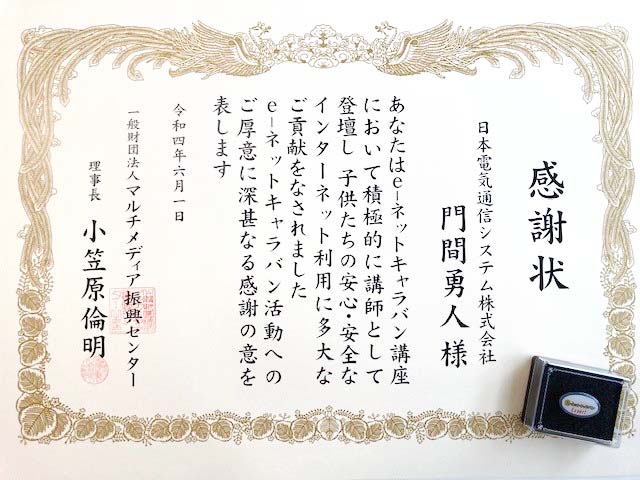 感謝状
日本電気通信システム株式会社
門間勇人様
あなたはe-ネットキャラバン講座
において積極的に講師として
登壇し 子供たちの安心・安全な
インターネット利用に多大な
ご貢献をなされました
e-ネットキャラバン活動への
ご厚意に深甚なる感謝の意を
表します
令和四年六月一日
一般財団法人マルチメディア振興センター
理事長 小笠原倫明